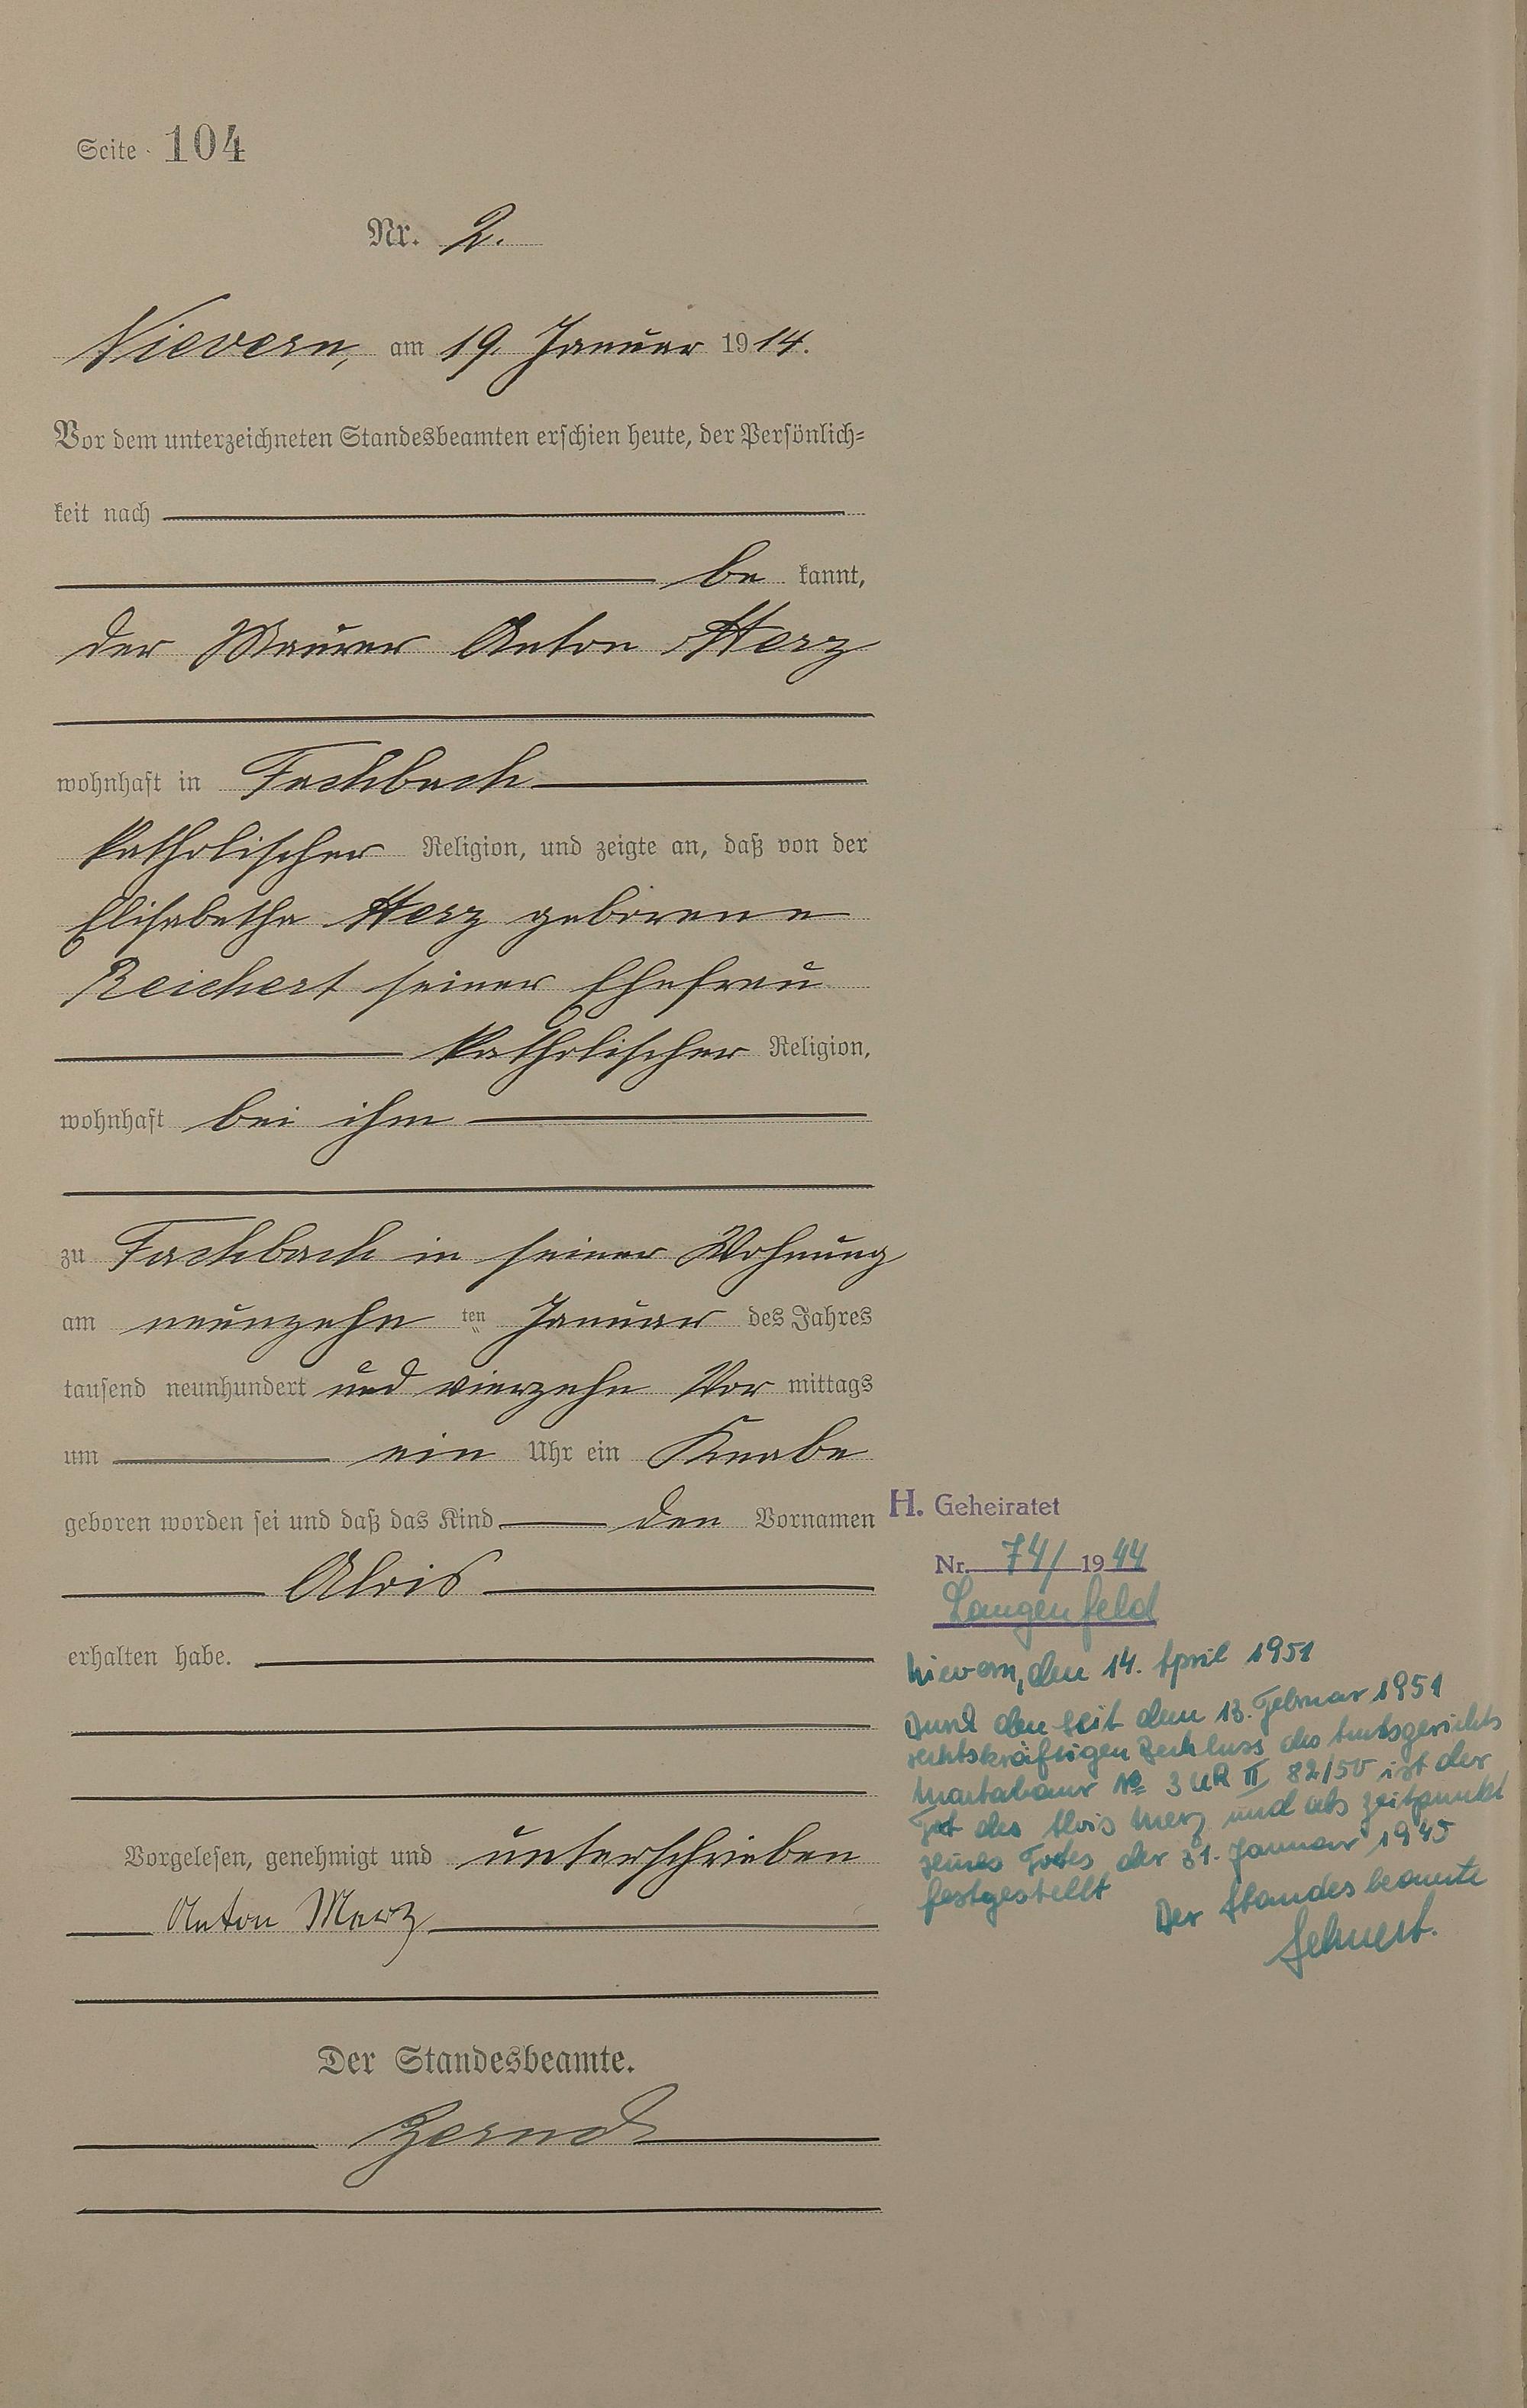 Seite 104
Nr. 2.
Nievern, am 19. Januar 1914.
Vor dem unterzeichneten Standesbeamten erschien heute, der Persönlich-
keit nach
be kannt,
der Maurer Anton Merz
wohnhaft in Fachbach
katholischer Religion, und zeigte an, daß von der
Elisabetha Merz geborene
Reichert seiner Ehefrau
katholischer Religion,
wohnhaft bei ihm
zu Fachbach in seiner Wohnung
am neunzehn ten Januar des Jahres
tausend neunhundert und vierzehn Vor mittags
um ein Uhr ein Knabe
geboren worden sei und daß das Kind den Vornamen
Alois
erhalten habe.
Vorgelesen, genehmigt und unterschrieben
Anton Merz
Der Standesbeamte.
H. Geheiratet
Nr. 74/1944
Langenfeld
Nievern, den 14. April 1951
Durch den seit dem 13. Februar 1951
rechtskräftigen Beschluss des Amtsgerichts
Montabaur No 3 UR II 82/50 ist der
Tod des Alois Merz und als Zeitpunkt
seines Todes der 31. Januar 1945
festgestellt
Der Standesbeamte